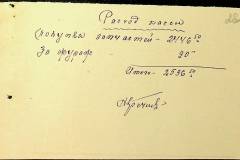 Расход кассы
Покупка запчастей - 2446 50
За фураж - 90 -
Итого - 2536 50